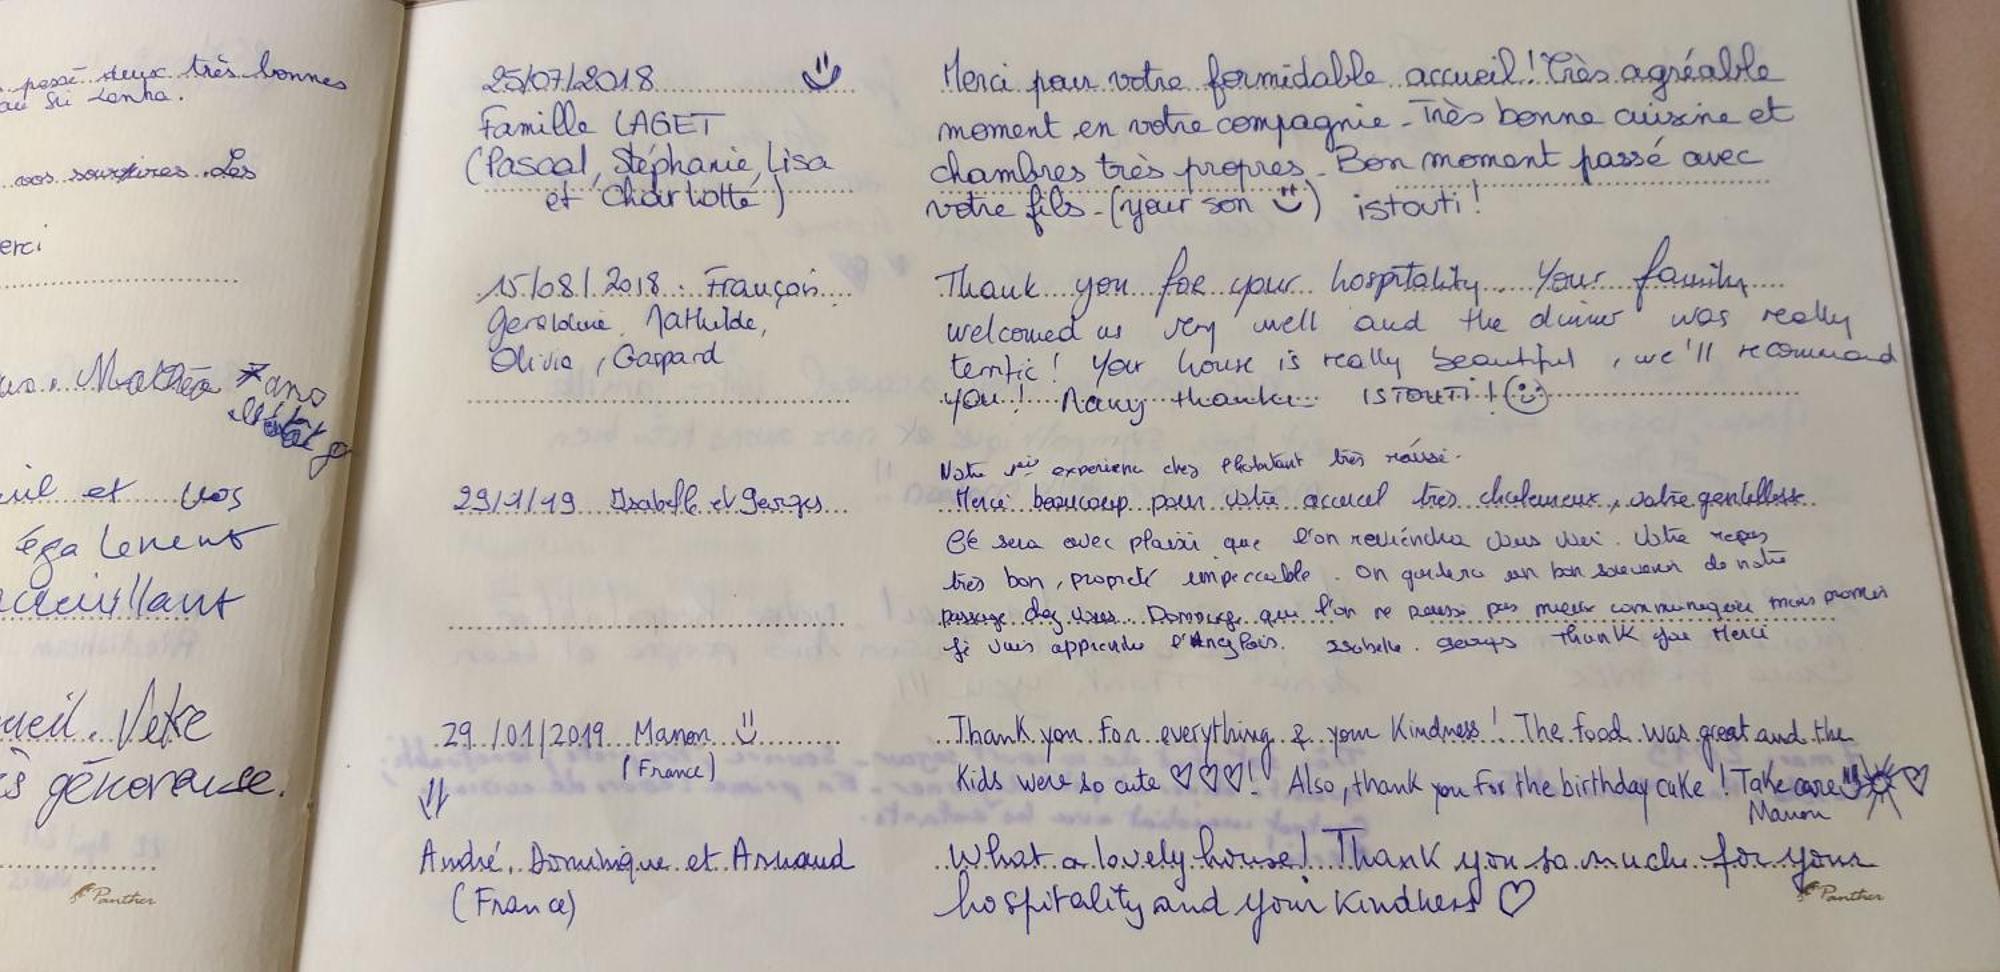 passé deux très bonnes
au Sri Lanka.
vos sourires. Les
erci
Mathéa 7 ans
et vos
également
accueillant
ueil. Votre
s généreuse.
Panther
25/07/2018
Famille LAGET
(Pascal, Stéphanie, Lisa
et Charlotte)
Merci pour votre formidable accueil! Très agréable
moment en votre compagnie - Très bonne cuisine et
chambres très propres - Bon moment passé avec
votre fils - (your son) istouti!
15/08/2018. François
Geraldine, Mathilde,
Olivia, Gaspard
Thank you for your hospitality. Your family
welcomed us very well and the dinner was really
terrific! Your house is really beautiful, we'll recommand
you! Many thanks ISTOUTI!
29/1/19 Isabelle et Georges
Notre 1ère experience chez l'habitant très réussi.
Merci beaucoup pour votre accueil très chaleureux, votre gentillesse
Ce sera avec plaisir que l'on reviendra vous voir. Votre repas
très bon, propreté impeccable. On gardera un bon souvenir de notre
passage chez vous. Dommage que l'on ne puisse pas mieux communiquer mais promis
je vais apprendre l'Anglais. Isabelle. Georges Thank you Merci
29/01/2019 Manon
(France)
Thank you for everything & your kindness! The food was great and the
kids were so cute ♡♡♡! Also, thank you for the birthday cake! Take care ♡
Manon
André, Dominique et Arnaud
(France)
What a lovely house! Thank you so much for your
hospitality and your kindness ♡
Panther